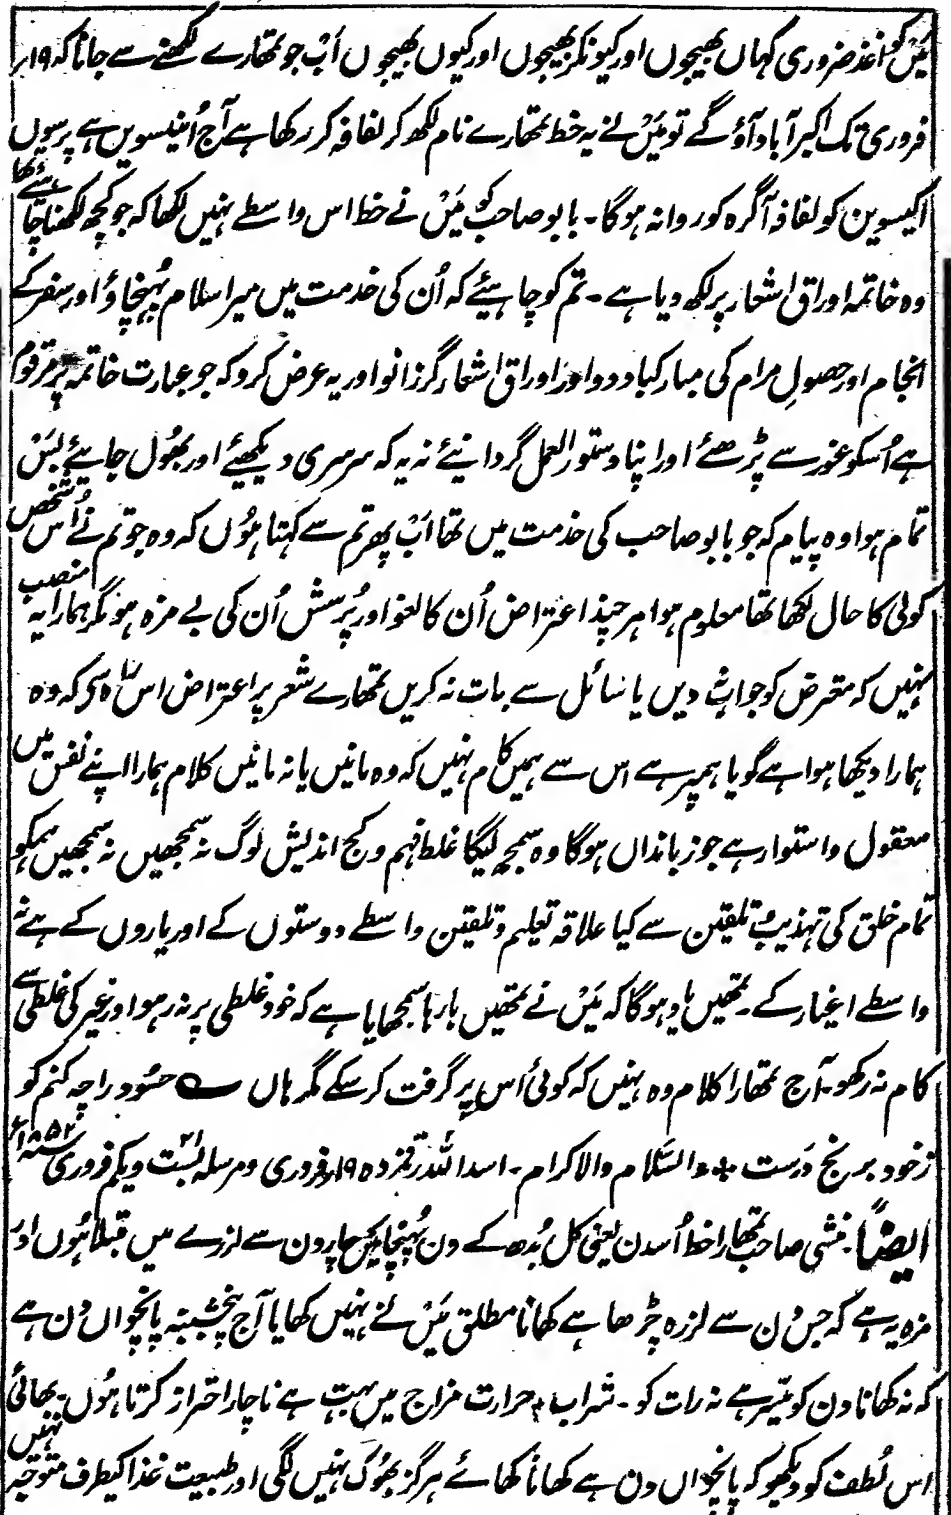 میں کواغذ ضروری کہاں بھیجوں اور کیونکر بھیجوں اور کیوں بھیجوں اب جو تمھارے لکھنے سے جانا کہ ۱۹
فروری تک اکبرآباد آؤ گے تو میں نے یہ خط تمھارے نام لکھ کر لفافہ کر رکھا ہے آج اُنیسویں ہے پرسوں
اکیسوین کو لفافہ آگرہ کو روانہ ہوگا۔ بابو صاحب کو میں نے خط اس واسطے نہیں لکھا کہ جو کچھ لکھنا چاہیے تھا
وہ خاتمہ اوراق اشعار پر لکھ دیا ہے۔ تم کو چاہیئے کہ اُن کی خدمت میں میرا سلام پہنچاؤ اور سفر کے
انجام اور حصولِ مرام کی مبارکباد دو اور اوراق اشعار گزرانو اور یہ عرض کرو کہ جو عبارت خاتمہ پر مرقوم
ہے اُسکو غور سے پڑھئے اور اپنا دستورالعمل گردانیئے نہ یہ کہ سرسری دیکھیئے اور بھول جایئے بس
تمام ہوا وہ پیام کہ جو بابو صاحب کی خدمت میں تھا اب پھر تم سے کہتا ہوں کہ وہ جو تم نے اُس شخص
کولی کا حال لکھا تھا معلوم ہوا ہر چند اعتراض اُن کا لغو اور پُرسش اُن کی بے مزہ ہو مگر ہمارا یہ منصب
نہیں کہ معترض کو جواب نہ دیں یا سائل سے بات نہ کریں تمھارے شعر پر اعتراض اس راہ سے کہ وہ
ہمارا دیکھا ہوا ہے گویا ہمپر ہے اس سے ہمیں کام نہیں کہ وہ مانیں یا نہ مانیں کلام ہمارا اپنے نفس میں
معقول و استوار ہے جو زباندان ہوگا وہ سمجھ لیگا غلط فہم و کج اندیش لوگ نہ سمجھیں نہ سمجھیں ہمکو
تمام خلق کی تہذیب و تلقین سے کیا علاقہ تعلیم و تلقین واسطے دوستوں کے اور یاروں کے ہے نہ
واسطے اغیار کے۔ تمھیں یاد ہوگا کہ میں نے تمھیں بارہا سمجھایا ہے کہ خود غلطی پر نہ رہو اور غیر کی غلطی سے
کام نہ رکھو۔ آج تمھارا کلام وہ نہیں کہ کوئی اُس پر گرفت کر سکے مگر ہاں ؎ حسود را چہ کنم کو
زخود برنج درست ؞ والسّلام والاکرام۔ اسد اللہ رقمزدہ ۱۹ فروری و مرسلہ بست و یکم ۲۱ فروری سنہ ۱۸۵۲ء
ایضاً۔ منشی صاحب تمھارا خط اُسدن یعنی کل بُدھ کے دن پہنچا کہ میں چار دن سے لرزے میں مبتلا ہوں اور
مزہ یہ ہے کہ جس دن سے لرزہ چڑھا ہے کھانا مطلق میں نے نہیں کھایا آج پنجشنبہ پانچواں دن ہے
کہ نہ کھانا دن کو میّسر ہے نہ رات کو۔ شراب ؞ حرارت مزاج میں بہت ہے ناچار احتراز کرتا ہوں۔ بھائی
اس لُطف کو دیکھو کہ پانچواں دن ہے کھانا کھائے ہرگز بھوک نہیں لگی اور طبیعت غذا کیطرف متوجہ نہیں